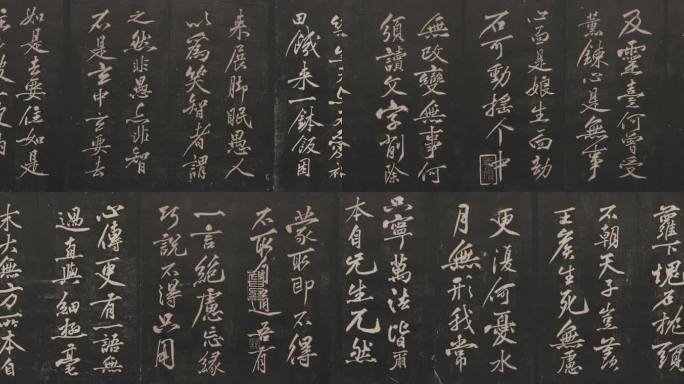 及靈臺何曾受
薰鍊心是無事
心面是娘生面劫
石可動搖个中
無改變無事何
須讀文字削除
田饑来一鉢飯困
来展脚眠愚人
以為笑智者謂
之然非愚亦非智
不是玄中玄要去
如是去要住如是
蘿下塊石枕頭
不朝天子豈羨
王矦生死無慮
更復何憂水
月無形我常
只寧萬法皆爾
本自无生兀然
蒙取即不得
不取自通吾有
一言絕慮忘緣
巧說不得只用
心傳更有一語無
過直與細極毫
末大無方所本自